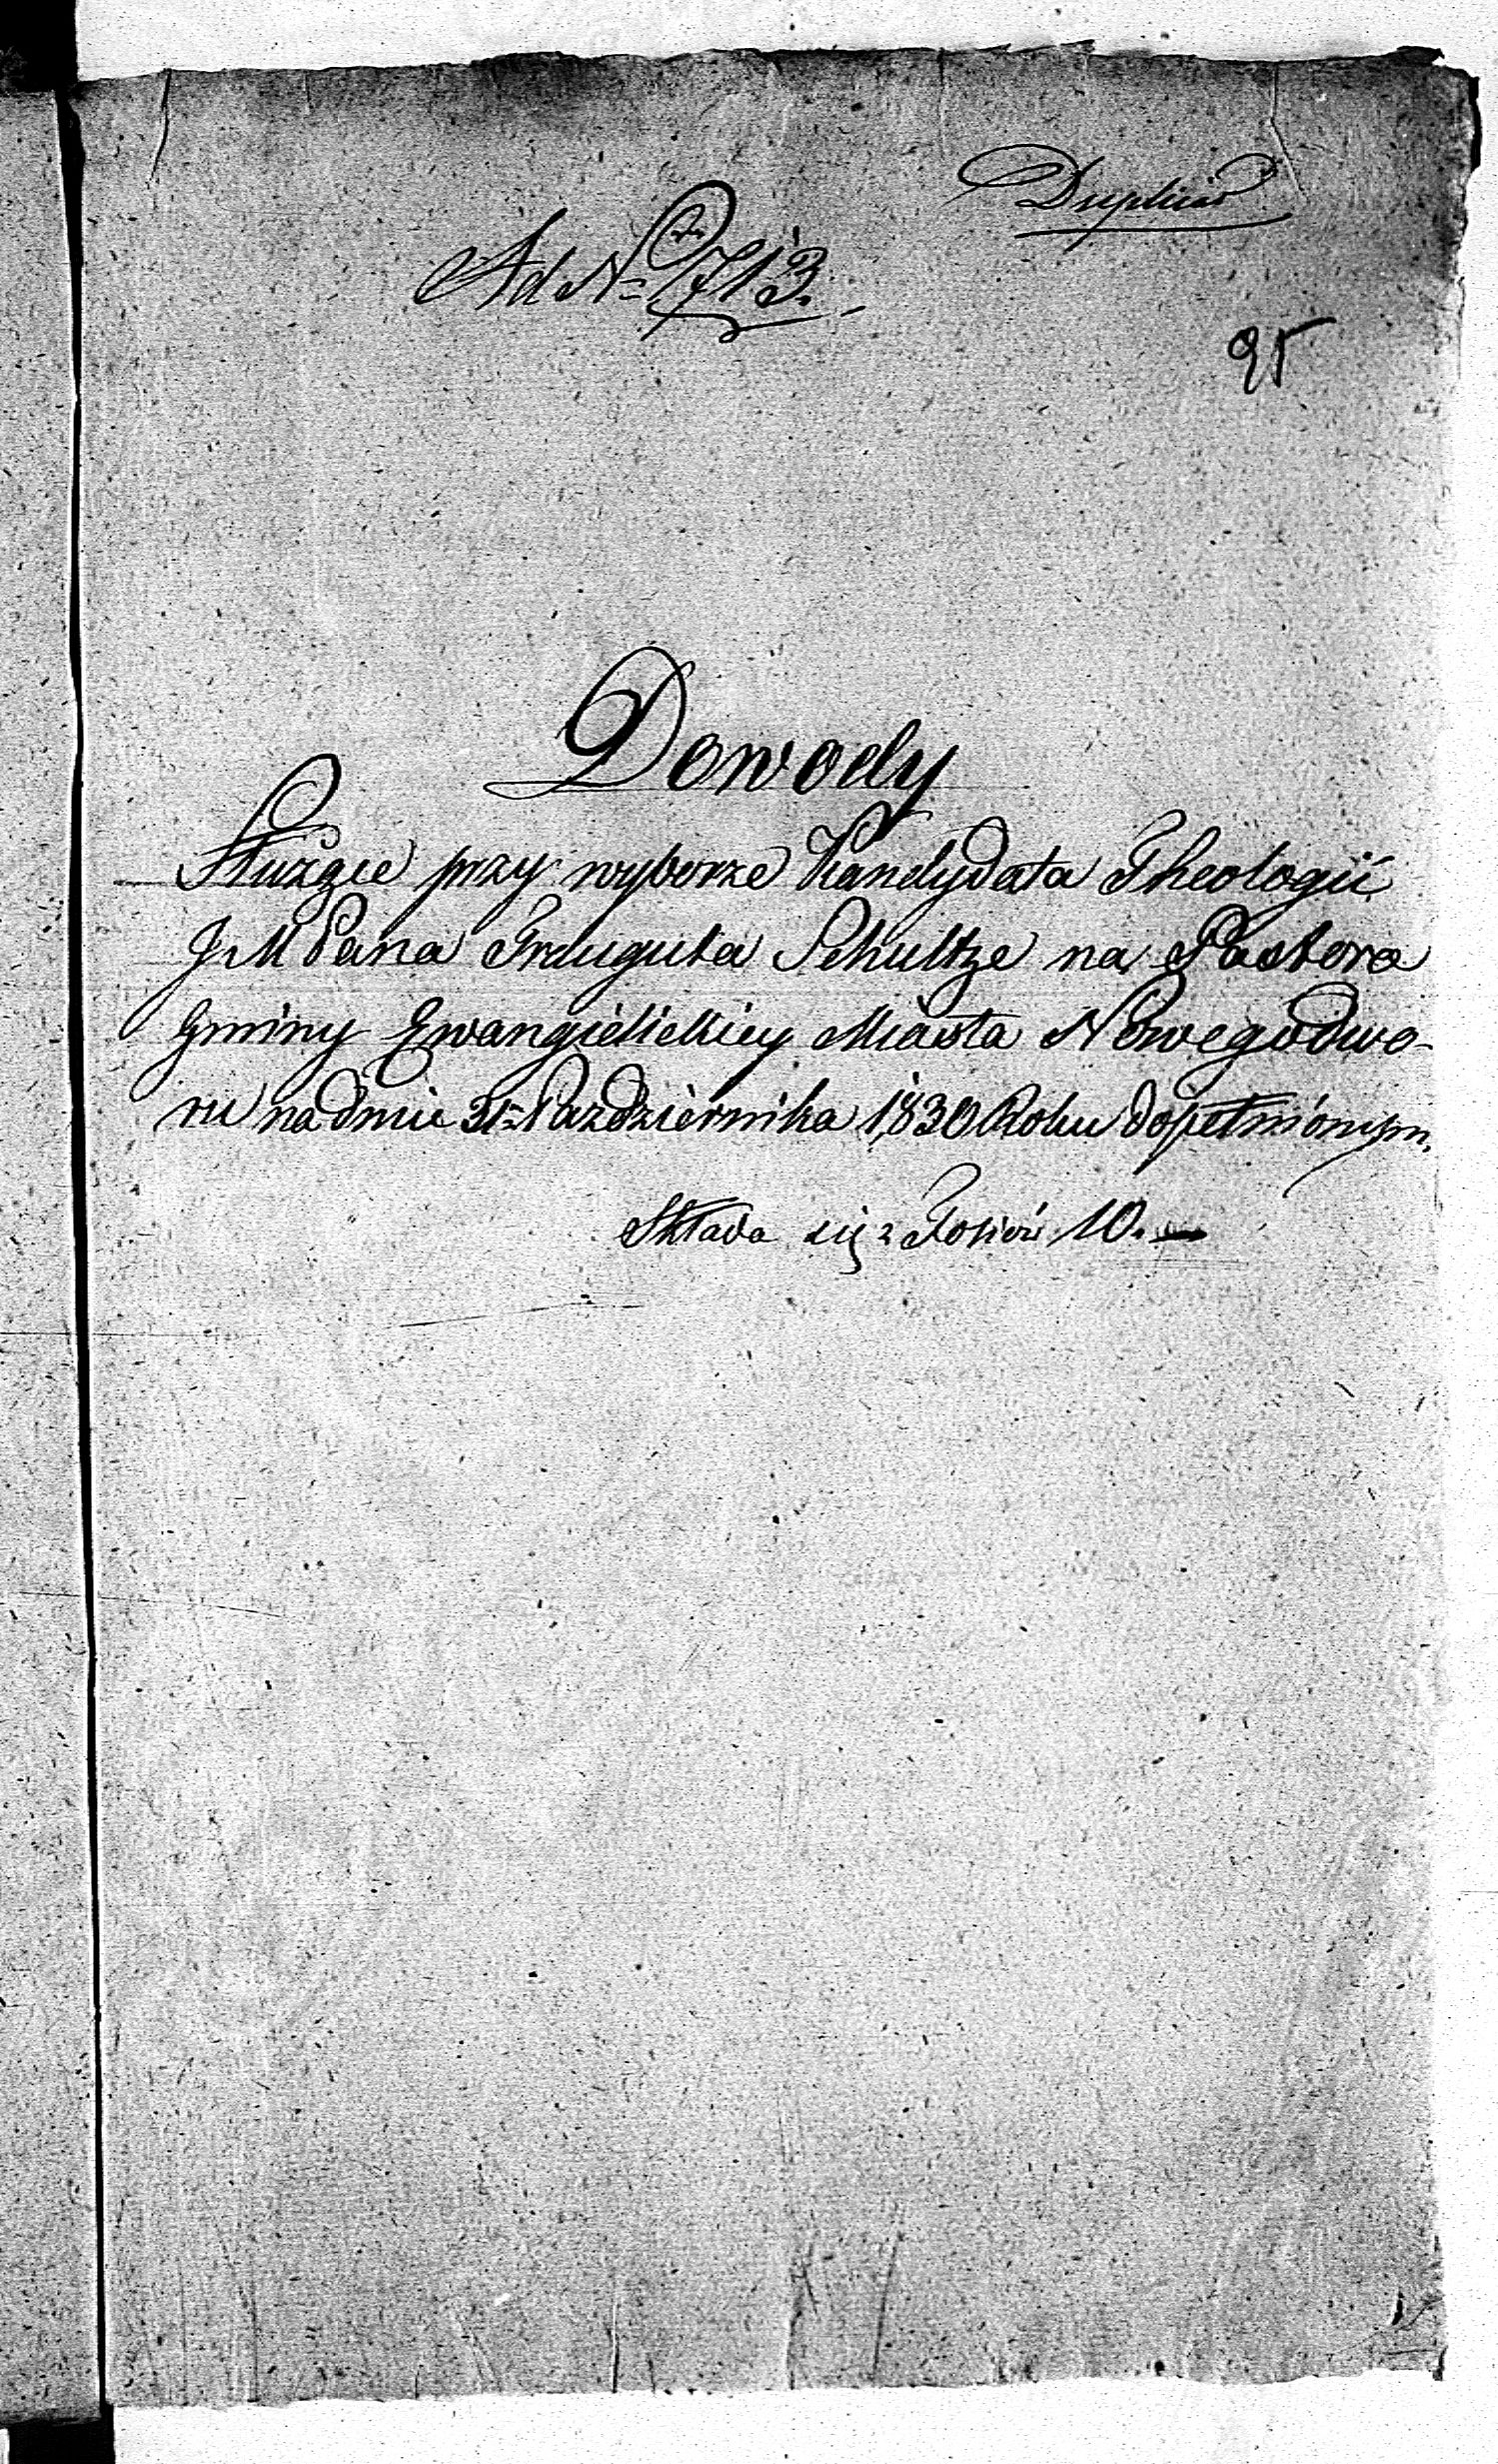 Duplicat
Ad N= 713.
95
Dowody
Służące przy wyborze Kandydata Theologii
JM Pana Trauguta Schultze na Pastora
Gminy Ewangielickiey Miasta Nowegodwo-
ru na dniu 31= Pazdziernika 1830 Roku dopełnionym.
Składa się z Fosiów 10.—